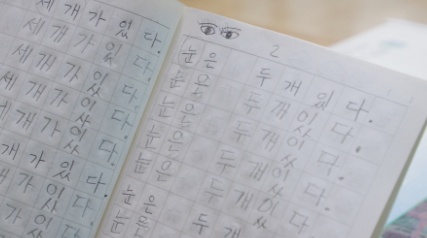 세 개가 있다.
세 개가 있다.
세 개가 있다.
세 개가 있다.
세 개가 있다.
세 개가 있다.
개가 있다.
개가 있다
2
눈은 두 개 있다.
눈은 두 개 있다.
눈은 두 개 있다.
눈은 두 개 있다.
눈은 두 개 있다.
눈은 두 개 있다
눈은 두 개